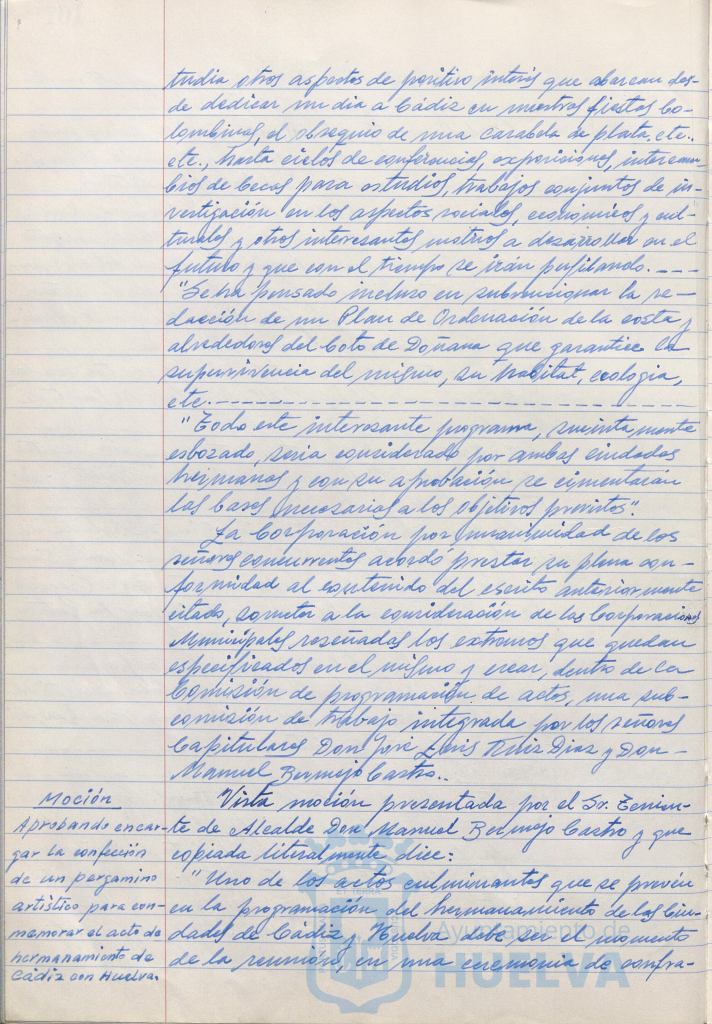 tudia otros aspectos de positivo interés que abarcan des-
de dedicar un dia a Cádiz en nuestras fiestas Co-
lombinas, el obsequio de una carabela de plata, etc.,
etc., hasta ciclos de conferencias, exposiciones, intercam-
bios de becas para estudios, trabajos conjuntos de in-
vestigación en los aspectos sociales, económicos y cul-
turales y otros interesantes motivos a desarrollar en el
futuro y que con el tiempo se irán perfilando. ---
"Se ha pensado incluso en subvencionar la re-
dacción de un Plan de Ordenación de la costa y
alrededores del Coto de Doñana que garantice la
supervivencia del mismo, su habitat, ecologia,
etc. ---
"Todo este interesante programa, sucintamente
esbozado, seria considerado por ambas ciudades
hermanas y con su aprobación se cimentarán
las bases necesarias a los objetivos previstos".
La Corporación por unanimidad de los
señores concurrentes acordó prestar su plena con-
formidad al contenido del escrito anteriormente
citado, someter a la consideración de las Corporaciones
Municipales reseñadas los extremos que quedan
especificados en el mismo y crear, dentro de la
Comisión de programación de actos, una sub-
comisión de trabajo integrada por los señores
Capitulares Don José Luis Ruiz Diaz y Don
Manuel Bermejo Castro..
Moción
Aprobando encar-
gar la confección
de un pergamino
artístico para con-
memorar el acto de
hermanamiento de
Cádiz con Huelva.
Vista moción presentada por el Sr. Tenien-
te de Alcalde Don Manuel Bermejo Castro y que
copiada literalmente dice:
"Uno de los actos culminantes que se prevén
en la programación del hermanamiento de las Ciu-
dades de Cádiz y Huelva debe ser el momento
de la reunión, en una ceremonia de confra-
Ayuntamiento de
HUELVA